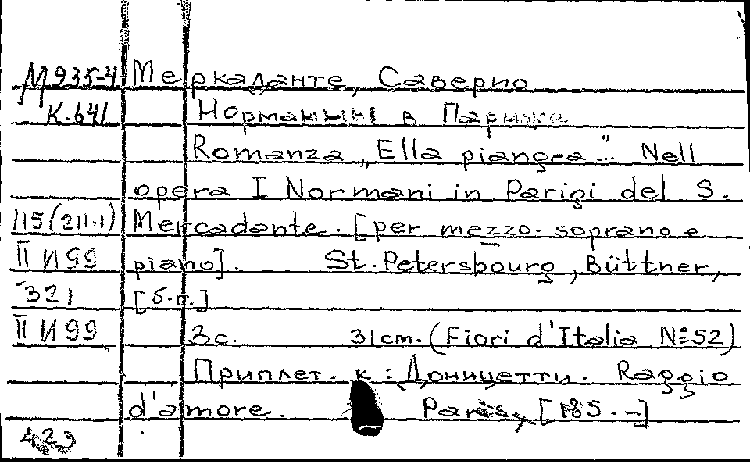 М935-4 Меркаданте, Саверио
К.641 Норманны в Париже
Romanza „Ella piangea" Nell
opera I Normani in Parigi del S.
115(211-1) Mercadante. [per mezzo-soprano e
II И99 piano]. St.-Petersbourg, Büttner,
321 [б.г.]
II И99 3с. 31cm. (Fiori d'Italia №52)
Приплет. к: Доницетти. Raggio
d'amore. Paris, [185.-]
423